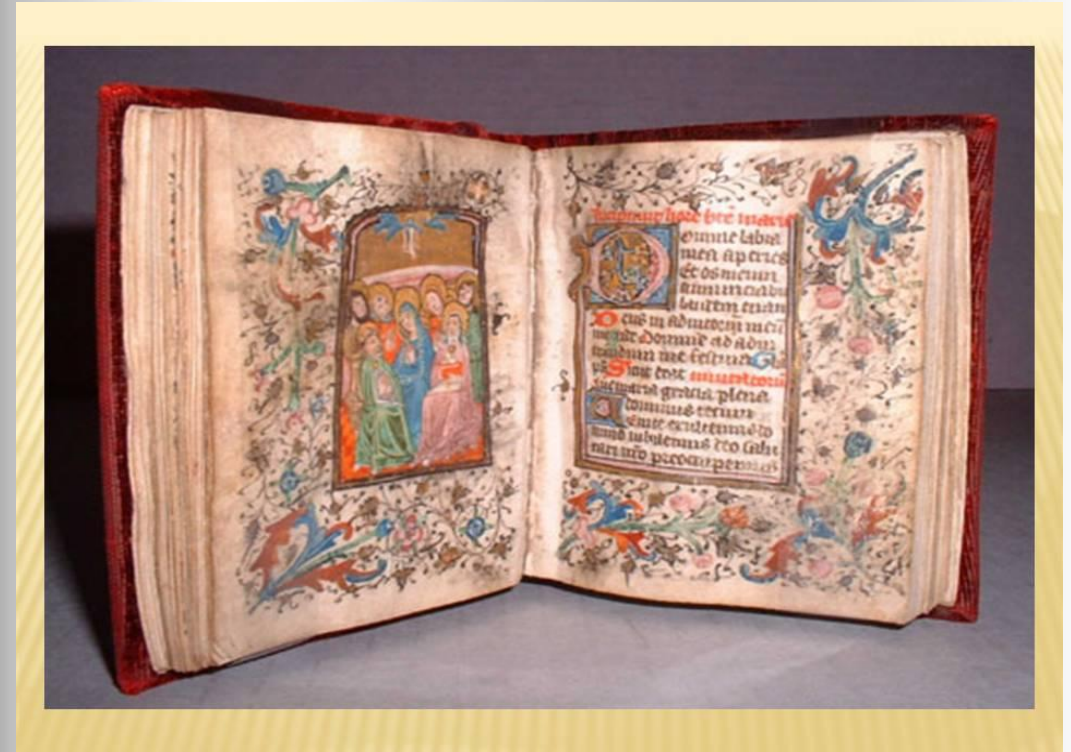 hore bte marie
Domine labia
mea aperies
Et os meum
annunciabit
laudem tuam
Deus in adiutoriu meu
intende Domine ad adiu
uandum me festina Gla
Sicut erat
maria gracia plena
dominus tecum
Uenite exultemus do
mino iubilemus deo salu
tari nro preoccupemus